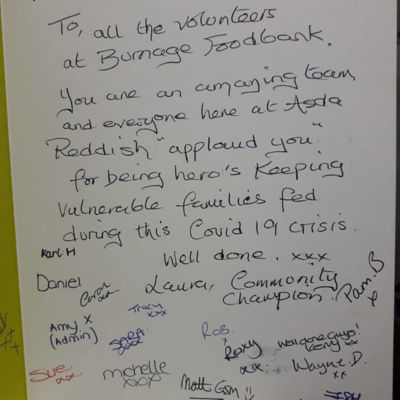 To, all the volunteers
at Burnage Foodbank.
You are an amazing team,
and everyone here at Asda
Reddish "applaud you"
for being hero's keeping
vulnerable families fed
during this Covid 19 crisis.
Well done. xxx
Karl M
Daniel
Carol
Laura, Community
Champion.
Pam. B
x
Tracy
xxx
Amy x
(Admin)
Rob.
x
Roxy
xx.
well done guys!
xx
Wayne. D.
xx
Sue
xxx
michelle
xxox
Matt GSM !!